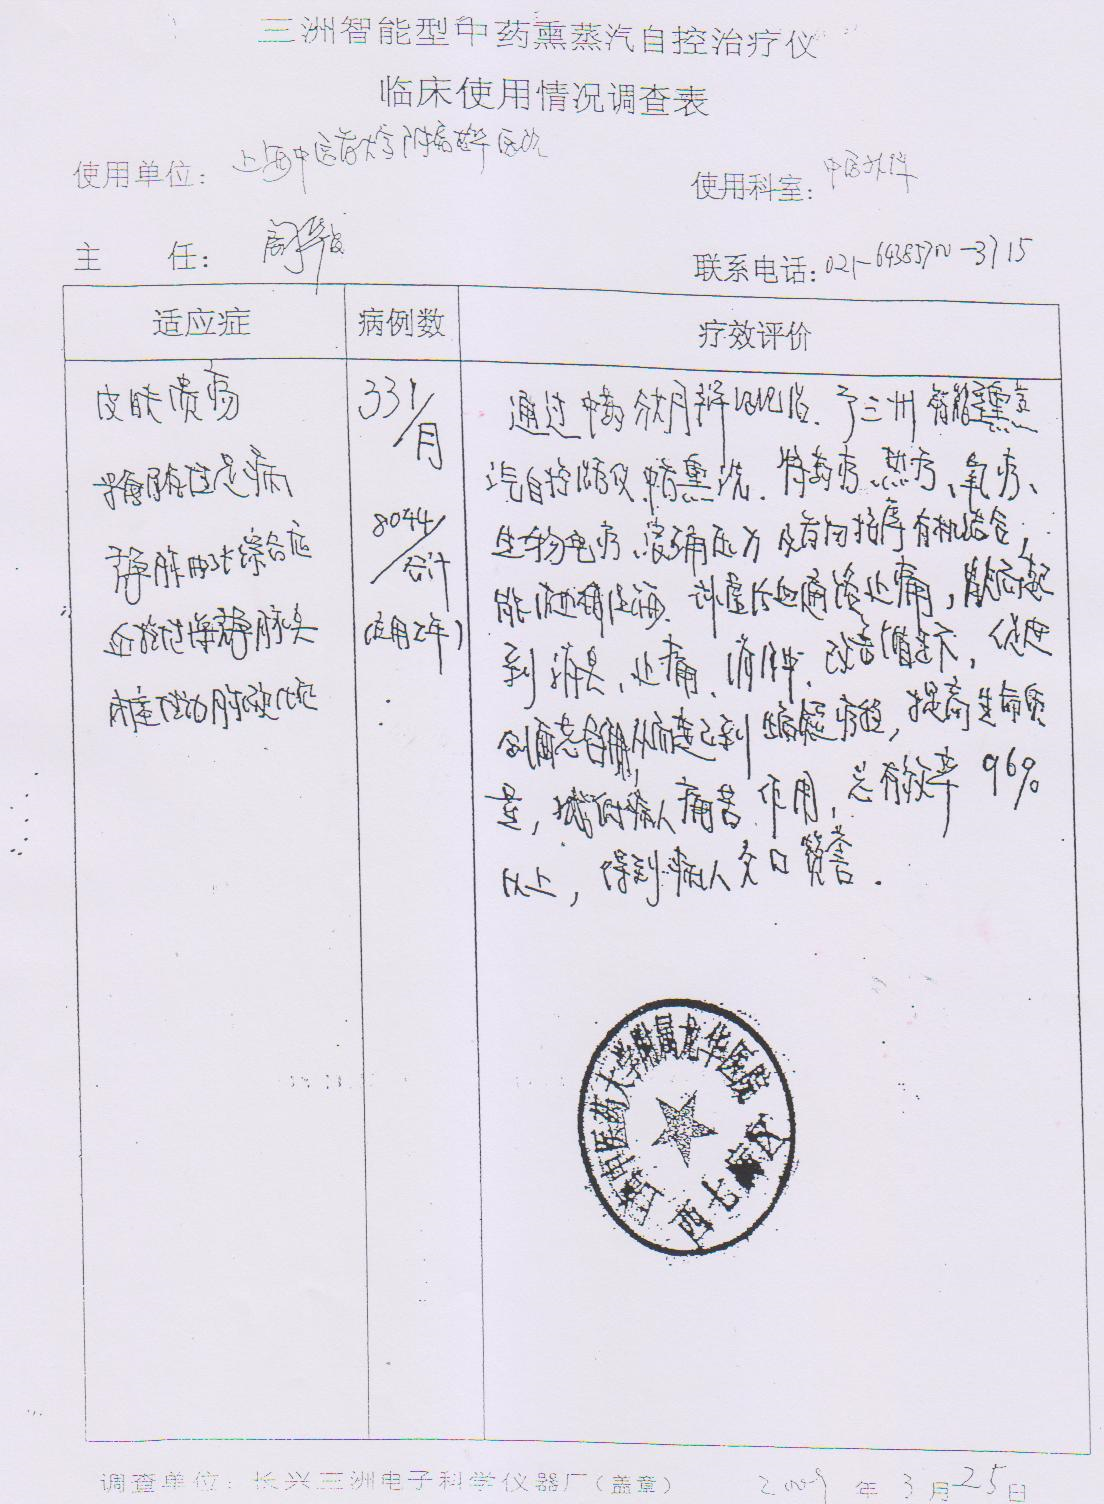 三洲智能型中药熏蒸汽自控治疗仪
临床使用情况调查表
使用单位: 上海中医药大学附属龙华医院
使用科室: 中医外科
主 任: 阙华发
联系电话: 021-64385700-3715
适应症 病例数 疗效评价
皮肤溃疡
331/月
静脉曲张综合征
8044/合计
血栓性浅静脉炎
(应用2年)
闭塞性动脉硬化症
通过中药 辨证 予三洲智能熏蒸
汽自控治疗仪 中药熏洗. 将药疗、热疗、氧疗、
生物电疗、 有机结合,
活血通络止痛,
到消炎、止痛、消肿、改善循环, 促进
创面愈合 从而达到缩短疗程, 提高生命质
量, 病人痛苦作用, 总有效率96%
以上, 得到病人交口赞誉.
上海中医药大学附属龙华医院
西七病区
调查单位: 长兴三洲电子科学仪器厂(盖章) 2009年3月25日